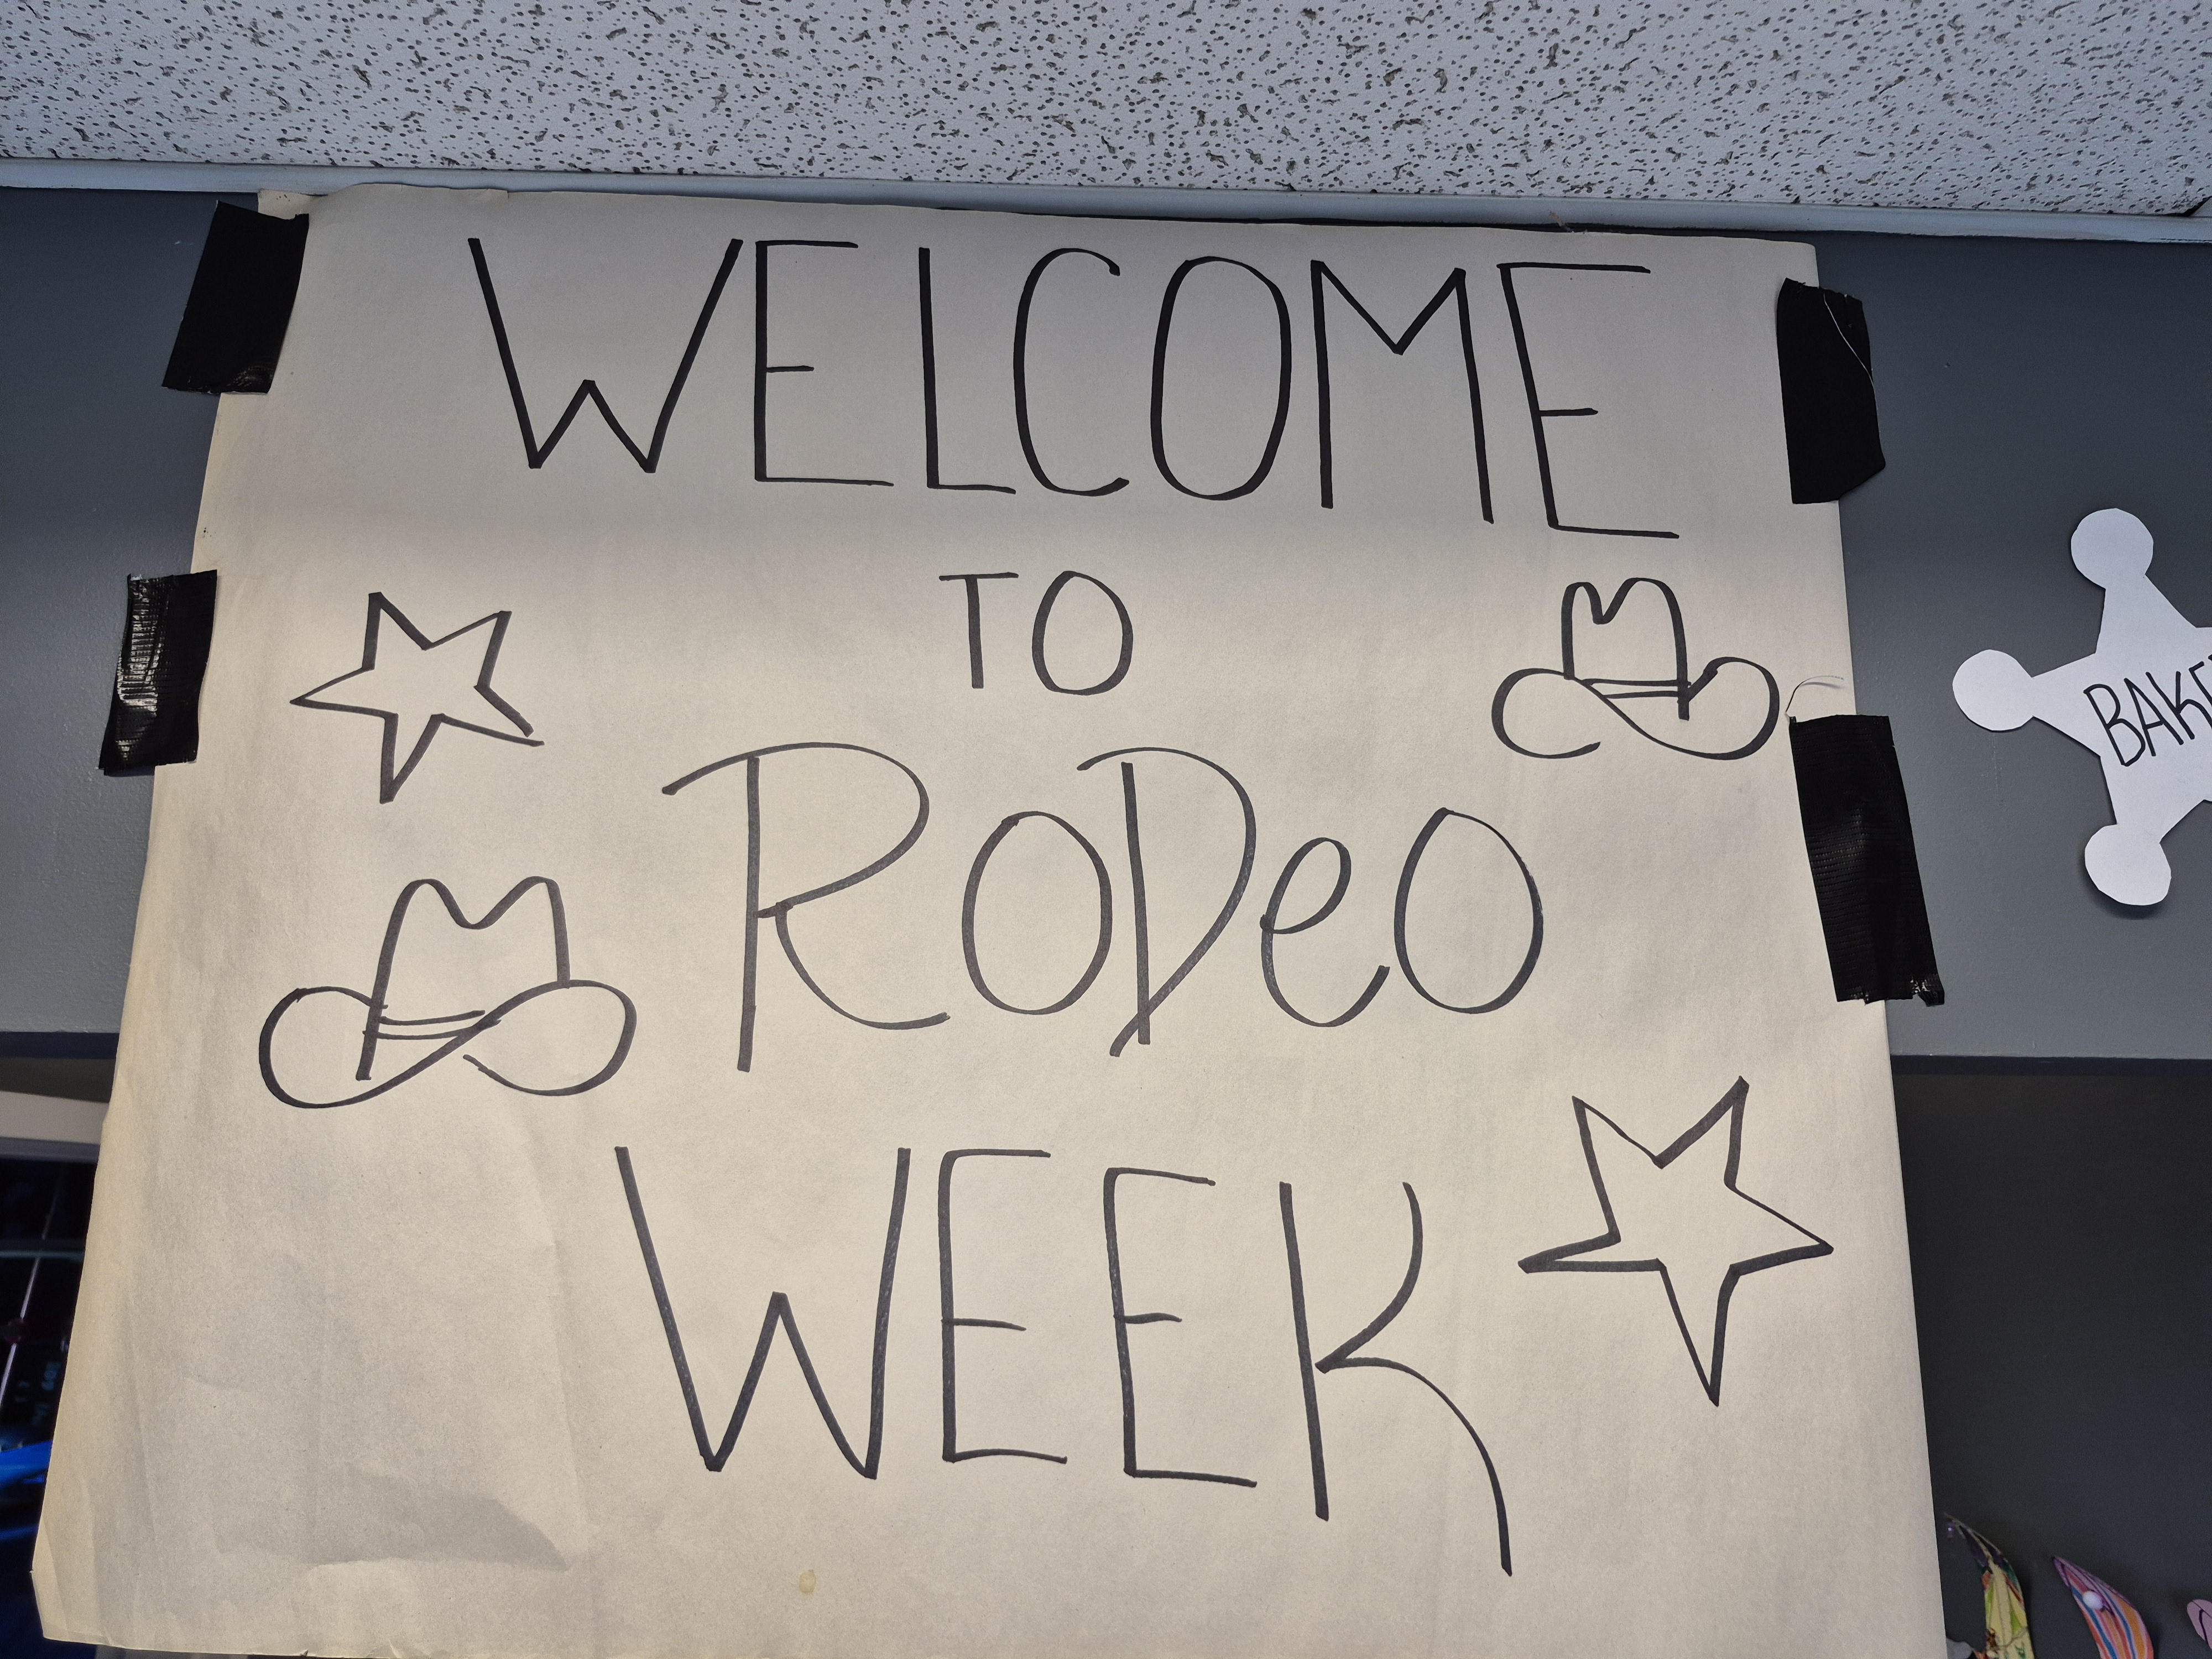 WELCOME
TO
RODeO
WEEK